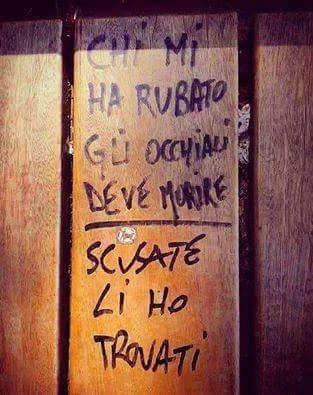 CHI MI
HA RUBATO
GLI OCCHIALI
DEVE MORIRE
SCUSATE
LI HO
TROVATI